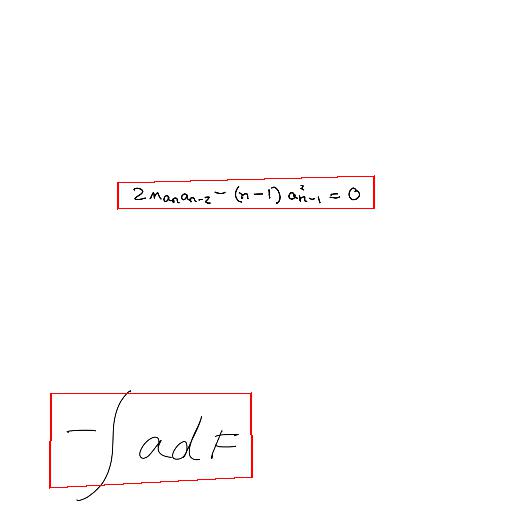 2na_na_{n-2} - (n-1)a_{n-1}^2 = 0
-∫adF